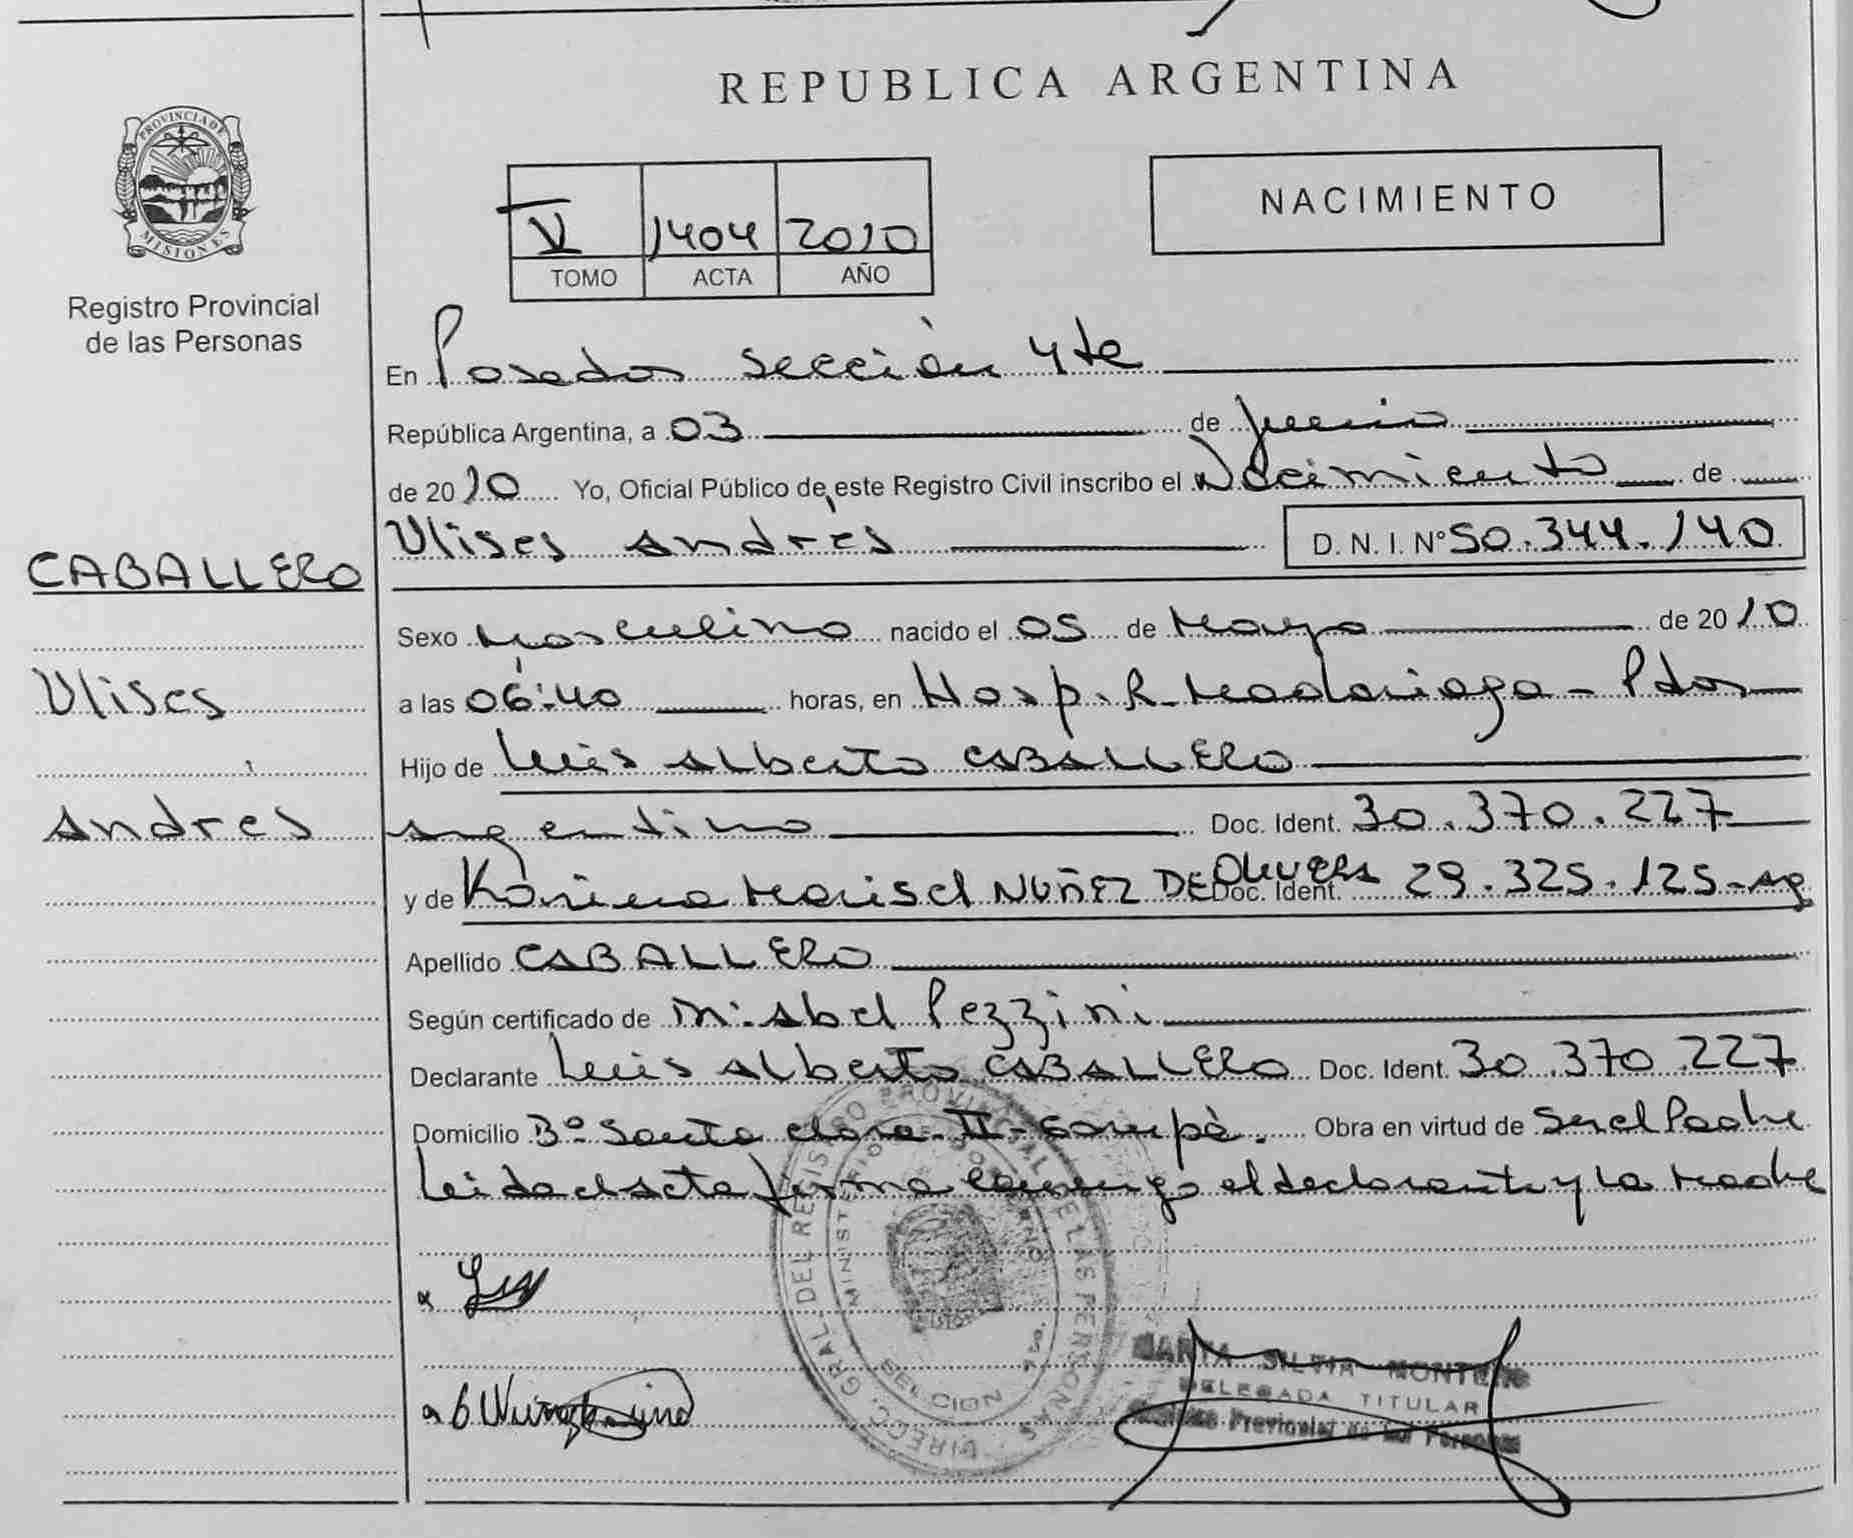 REPUBLICA ARGENTINA
PROVINCIA DE
MISIONES
Registro Provincial
de las Personas
V 1404 2010
TOMO ACTA AÑO
NACIMIENTO
En Posadas sección 4ta
República Argentina, a 03 de Junio
de 2010 Yo, Oficial Público de este Registro Civil inscribo el Nacimiento de
Ulises Andrés D. N. I. Nº 50.344.140
CABALLERO
Ulises
Andrés
Sexo Masculino nacido el 05 de Mayo de 2010
a las 06:40 horas, en Hosp. R. Madariaga - Pdas
Hijo de Luis Alberto CABALLERO
argentino Doc. Ident. 30.370.227
y de Karina Marisel NUÑEZ DE Olivera Doc. Ident. 29.325.125-ag
Apellido CABALLERO
Según certificado de M. Abel Pezzini
Declarante Luis Alberto CABALLERO Doc. Ident. 30.370.227
Domicilio Bº Santa Clara II - Garupá. Obra en virtud de Ser el Padre
Leida el acta firma conmigo el declarante y la Madre
DIRECC. GRAL. DEL REGISTRO PROVINCIAL DE LAS PERSONAS
MARTA SILVIA
DELEGADA TITULAR
Provincial de las Personas